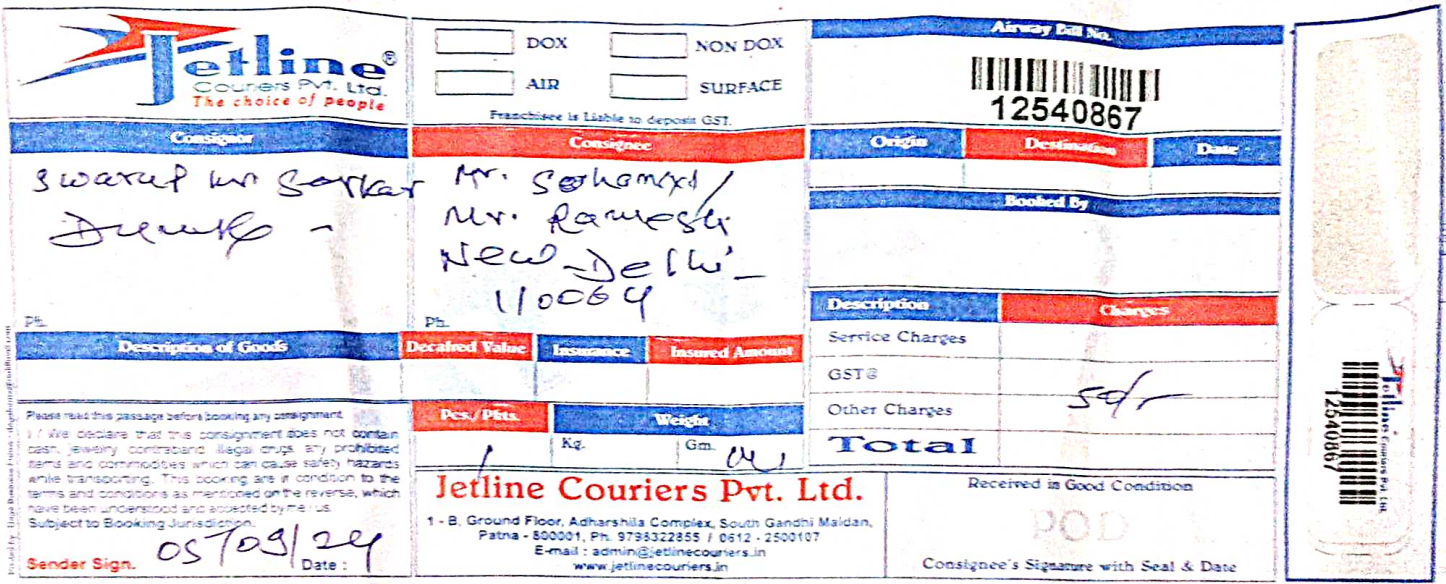 Jetline®
Couriers Pvt. Ltd.
The choice of people
DOX
NON DOX
AIR
SURFACE
Franchisee is Liable to deposit GST.
Airway Bill No.
12540867
Consignor
Swarup kr Sarkar
Ph.
Consignee
Mr.
Mr. Ramesh
New Delhi -
110064
Ph.
Origin
Destination
Date
Booked By
Description of Goods
Decalred Value
Insurance
Insured Amount
Description
Charges
Service Charges
GST@
Other Charges
Total
Please read this passage before booking any consignment.
I / We declare that this consignment does not contain
cash, jewelry contraband, illegal drugs, any prohibited
items and commodities which can cause safety hazards
while transporting. This booking are in condition to the
terms and conditions as mentioned on the reverse, which
have been understood and accepted by me / us.
Subject to Booking Jurisdiction.
Sender Sign.
05/09/24
Date :
Pcs./Pkts.
1
Weight
Kg.
Gm.
Jetline Couriers Pvt. Ltd.
1 - B, Ground Floor, Adharshila Complex, South Gandhi Maidan,
Patna - 800001, Ph. 9798322855 / 0612 - 2500107
E-mail : admin@jetlinecouriers.in
www.jetlinecouriers.in
Received in Good Condition
POD
Consignee's Signature with Seal & Date
Jetline Couriers Pvt. Ltd.
12540867